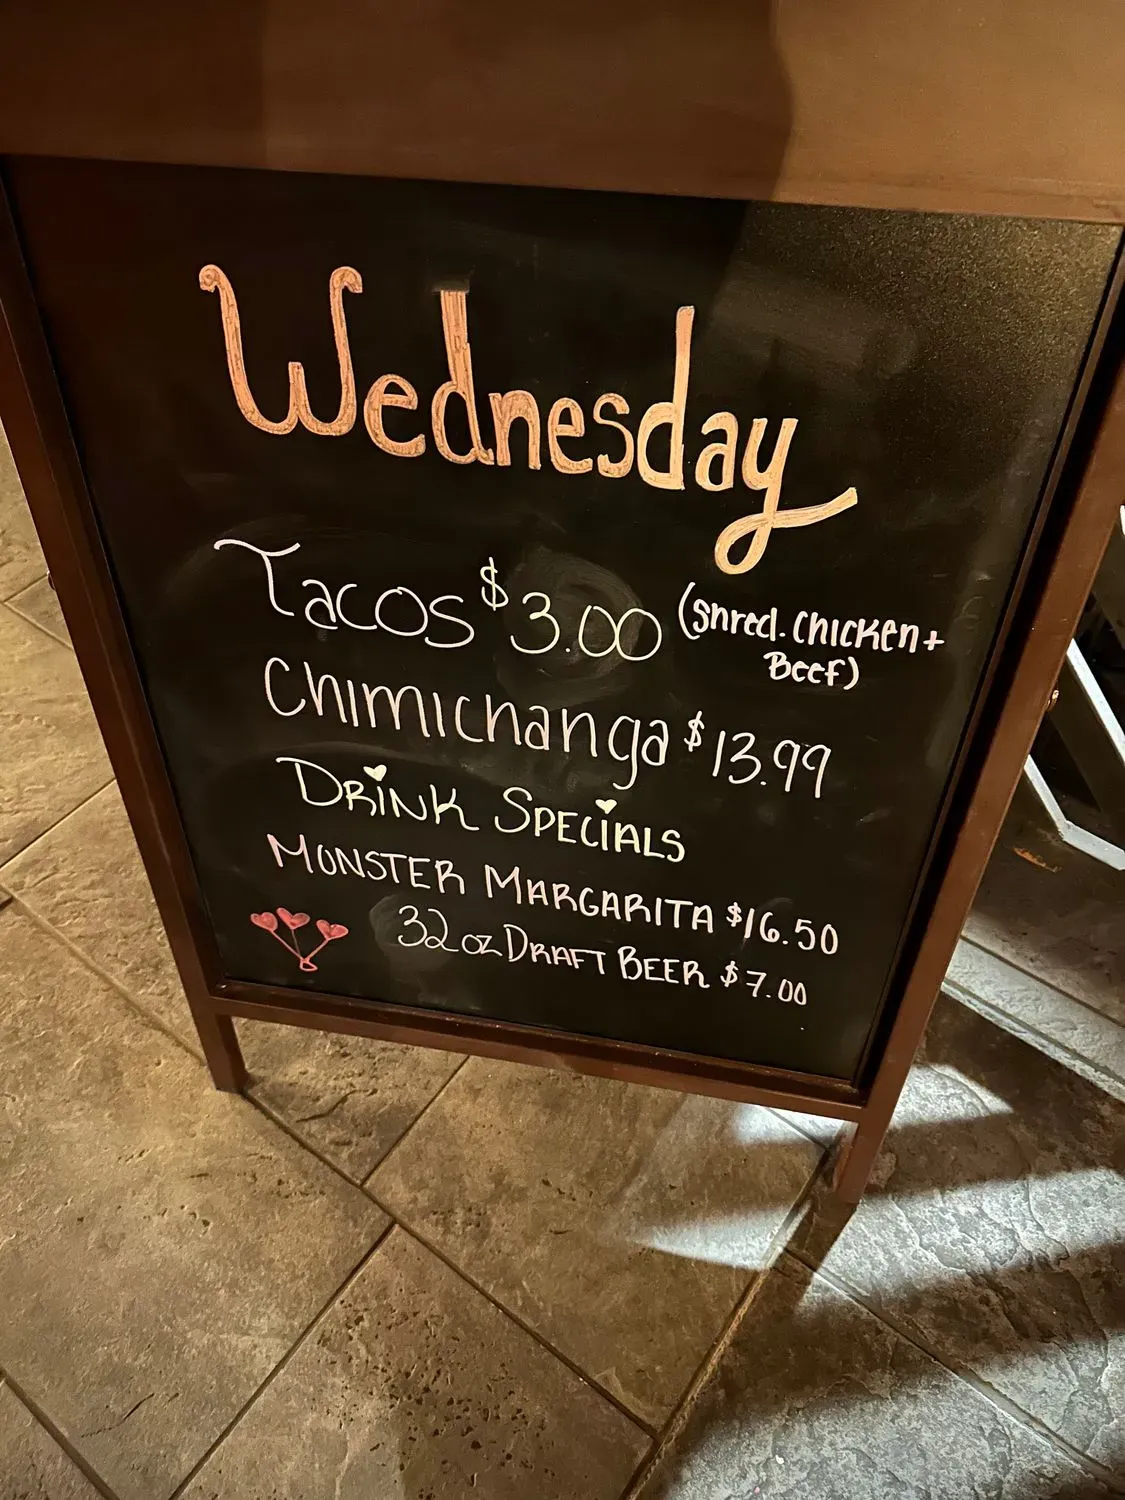 Wednesday
Tacos $3.00 (Shred. Chicken +
Beef)
Chimichanga $13.99
DRiNK SPECiALS
MONSTER MARGARITA $16.50
32oz DRAFT BEER $7.00